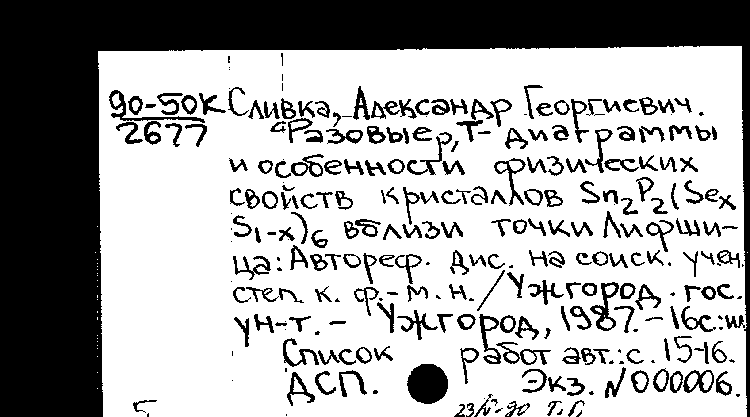 90-50К Сливка, Александр Георгиевич.
2677 Фазовые p,T- диаграммы
и особенности физических
свойств кристаллов Sn2P2(Sex
S1-x)6 вблизи точки Лифши-
ца: Автореф. дис. на соиск. учен.
степ. к. ф.-м. н. / Ужгород. гос.
ун-т. - Ужгород, 1987. - 16с.: ил
Список работ авт.: с. 15-16.
ДСП. Экз. N 000006.